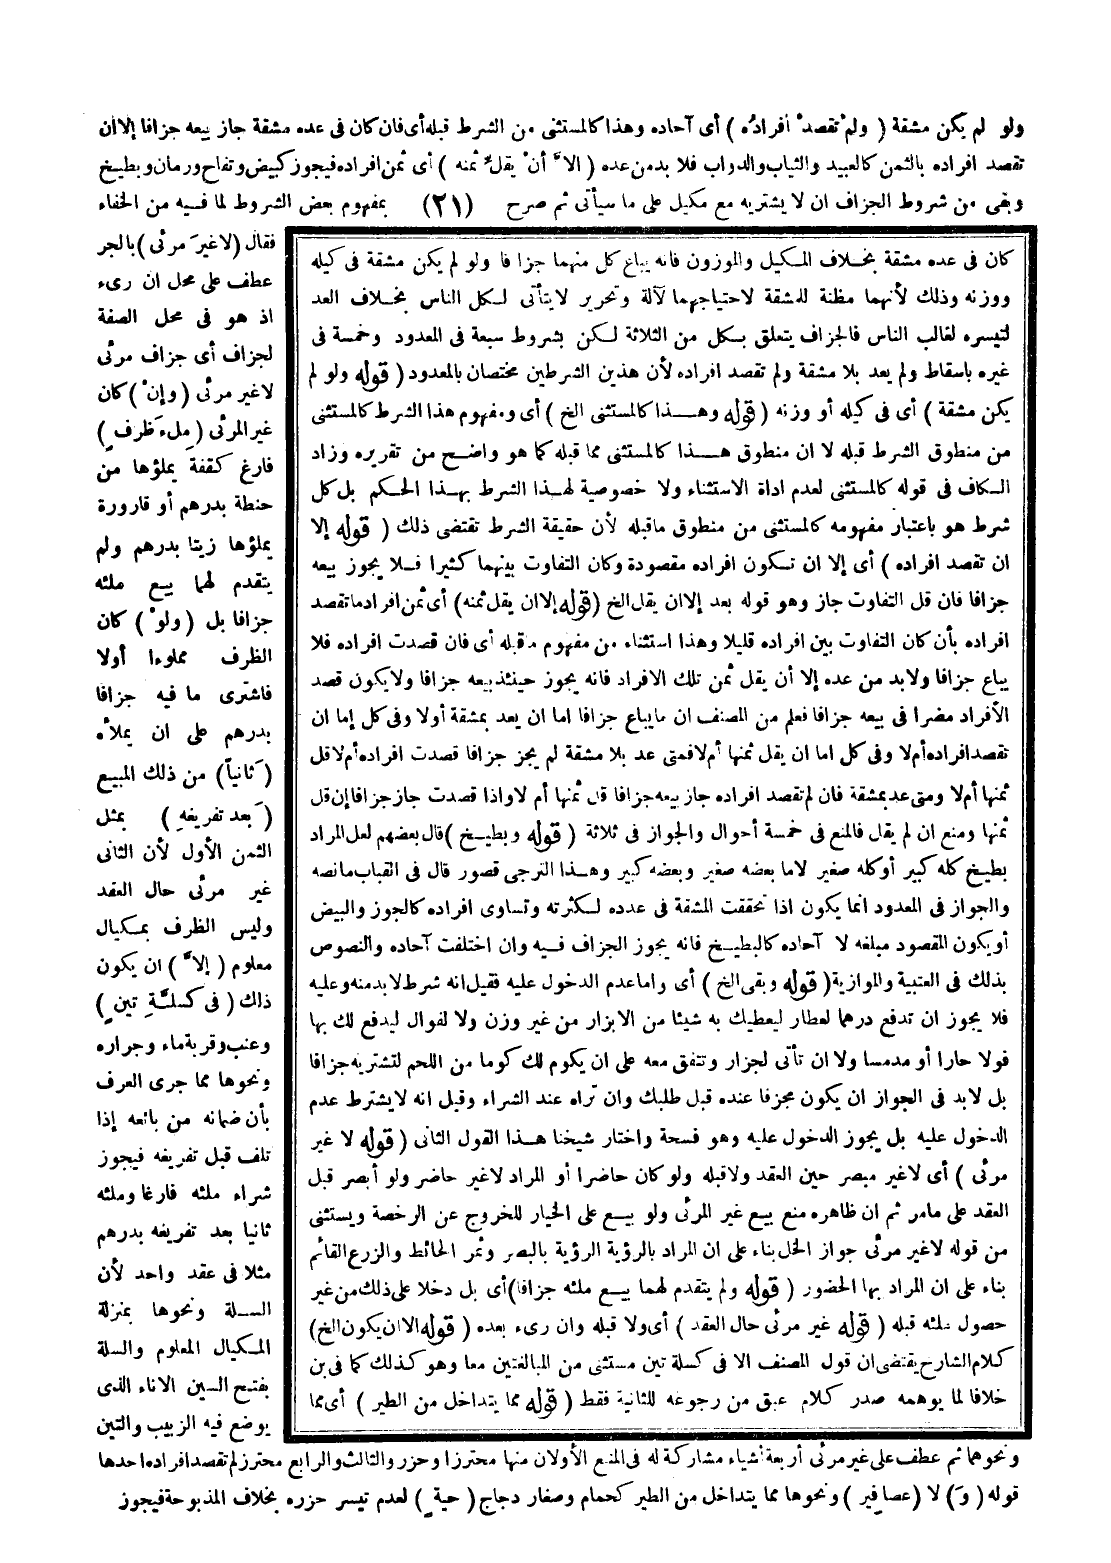 ولو لم يكن مشقة ( ولم تقصد أفراده ) أى آحاده وهذا كالمستثنى من الشرط قبله أى فان كان فى عده مشقة جاز بيعه جزافا إلا أن
تقصد افراده بالثمن كالعبيد والثياب والدواب فلا بد من عده ( الا أن يقل ثمنه ) أى ثمن افراده فيجوز كبيض وتفاح ورمان وبطيخ
وبقى من شروط الجزاف ان لا يشتريه مع مكيل على ما سيأتى ثم صرح (٢١) بمفهوم بعض الشروط لما فيه من الخفاء
فقال (لا غير مرئى) بالجر
عطف على محل ان رىء
اذ هو فى محل الصفة
لجزاف أى جزاف مرئى
لا غير مرئى ( وإن ) كان
غير المرئى ( ملء ظرف )
فارغ كقفة يملؤها من
حنطة بدرهم أو قارورة
يملؤها زيتا بدرهم ولم
يتقدم لهما بيع ملئه
جزافا بل ( ولو ) كان
الظرف مملوءا أولا
فاشترى ما فيه جزافا
بدرهم على ان يملأه
( ثانيا ) من ذلك المبيع
( بعد تفريغه ) بمثل
الثمن الأول لأن الثانى
غير مرئى حال العقد
وليس الظرف بمكيال
معلوم ( إلا ) ان يكون
ذاك ( فى كسلة تين )
وعنب وقربة ماء وجراره
ونحوها مما جرى العرف
بأن ضمانه من بائعه إذا
تلف قبل تفريغه فيجوز
شراء ملئه فارغا وملئه
ثانيا بعد تفريغه بدرهم
مثلا فى عقد واحد لأن
السلة ونحوها بمنزلة
المكيال المعلوم والسلة
بفتح السين الاناء الذى
يوضع فيه الزبيب والتين
كان فى عده مشقة بخلاف المكيل والموزون فانه يباع كل منهما جزافا ولو لم يكن مشقة فى كيله
ووزنه وذلك لأنهما مظنة للمشقة لاحتياجهما لآلة وتحرير لا يتأتى لكل الناس بخلاف العد
لتيسره لغالب الناس فالجزاف يتعلق بكل من الثلاثة لكن بشروط سبعة فى المعدود وخمسة فى
غيره باسقاط ولم يعد بلا مشقة ولم تقصد افراده لأن هذين الشرطين مختصان بالمعدود ( قوله ولو لم
يكن مشقة ) أى فى كيله أو وزنه ( قوله وهذا كالمستثنى الخ ) أى ومفهوم هذا الشرط كالمستثنى
من منطوق الشرط قبله لا ان منطوق هذا كالمستثنى مما قبله كما هو واضح من تقريره وزاد
الكاف فى قوله كالمستثنى لعدم اداة الاستثناء ولا خصوصية لهذا الشرط بهذا الحكم بل كل
شرط هو باعتبار مفهومه كالمستثنى من منطوق ما قبله لأن حقيقة الشرط تقتضى ذلك ( قوله إلا
ان تقصد افراده ) أى إلا ان تكون افراده مقصودة وكان التفاوت بينهما كثيرا فلا يجوز بيعه
جزافا فان قل التفاوت جاز وهو قوله بعد إلا ان يقل الخ ( قوله إلا ان يقل ثمنه ) أى ثمن افراد ما تقصد
افراده بأن كان التفاوت بين افراده قليلا وهذا استثناء من مفهوم ما قبله أى فان قصدت افراده فلا
يباع جزافا ولا بد من عده إلا أن يقل ثمن تلك الافراد فانه يجوز حينئذ بيعه جزافا ولا يكون قصد
الأفراد مضرا فى بيعه جزافا فعلم من المصنف ان ما يباع جزافا اما ان يعد بمشقة أولا وفى كل إما ان
تقصد افراده أم لا وفى كل اما ان يقل ثمنها أم لا فمتى عد بلا مشقة لم يجز جزافا قصدت افراده أم لا قل
ثمنها أم لا ومتى عد بمشقة فان لم تقصد افراده جاز بيعه جزافا قل ثمنها أم لا واذا قصدت جاز جزافا إن قل
ثمنها ومنع ان لم يقل فالمنع فى خمسة أحوال والجواز فى ثلاثة ( قوله وبطيخ ) قال بعضهم لعل المراد
بطيخ كله كبير أو كله صغير لا ما بعضه صغير وبعضه كبير وهذا الترجى قصور قال فى القباب ما نصه
والجواز فى المعدود انما يكون اذا تحققت المشقة فى عدده لكثرته وتساوى افراده كالجوز والبيض
أو يكون المقصود مبلغه لا آحاده كالبطيخ فانه يجوز الجزاف فيه وان اختلفت آحاده والنصوص
بذلك فى العتبية والموازية ( قوله وبقى الخ ) أى واما عدم الدخول عليه فقيل انه شرط لا بد منه وعليه
فلا يجوز ان تدفع درهما لعطار ليعطيك به شيئا من الابزار من غير وزن ولا لفوال ليدفع لك بها
فولا حارا أو مدمسا ولا ان تأتى لجزار وتتفق معه على ان يكوم لك كوما من اللحم لتشتريه جزافا
بل لا بد فى الجواز ان يكون مجزفا عنده قبل طلبك وان تراه عند الشراء وقيل انه لا يشترط عدم
الدخول عليه بل يجوز الدخول عليه وهو فسحة واختار شيخنا هذا القول الثانى ( قوله لا غير
مرئى ) أى لا غير مبصر حين العقد ولا قبله ولو كان حاضرا أو المراد لا غير حاضر ولو أبصر قبل
العقد على ما مر ثم ان ظاهره منع بيع غير المرئى ولو بيع على الخيار للخروج عن الرخصة ويستثنى
من قوله لا غير مرئى جواز الخل بناء على ان المراد بالرؤية الرؤية بالبصر وثمر الحائط والزرع القائم
بناء على ان المراد بها الحضور ( قوله ولم يتقدم لهما بيع ملئه جزافا ) أى بل دخلا على ذلك من غير
حصول ملئه قبله ( قوله غير مرئى حال العقد ) أى ولا قبله وان رىء بعده ( قوله الا ان يكون الخ )
كلام الشارح يقتضى ان قول المصنف الا فى كسلة تين مستثنى من المبالغتين معا وهو كذلك كما فى بن
خلافا لما يوهمه صدر كلام عبق من رجوعه للثانية فقط ( قوله مما يتداخل من الطير ) أى مما
ونحوهما ثم عطف على غير مرئى أربعة أشياء مشاركة له فى المنع الأولان منها محترزا وحزر والثالث والرابع محترز لم تقصد افراده احدها
قوله ( و ) لا ( عصافير ) ونحوها مما يتداخل من الطير كحمام وصغار دجاج ( حية ) لعدم تيسر حزره بخلاف المذبوحة فيجوز